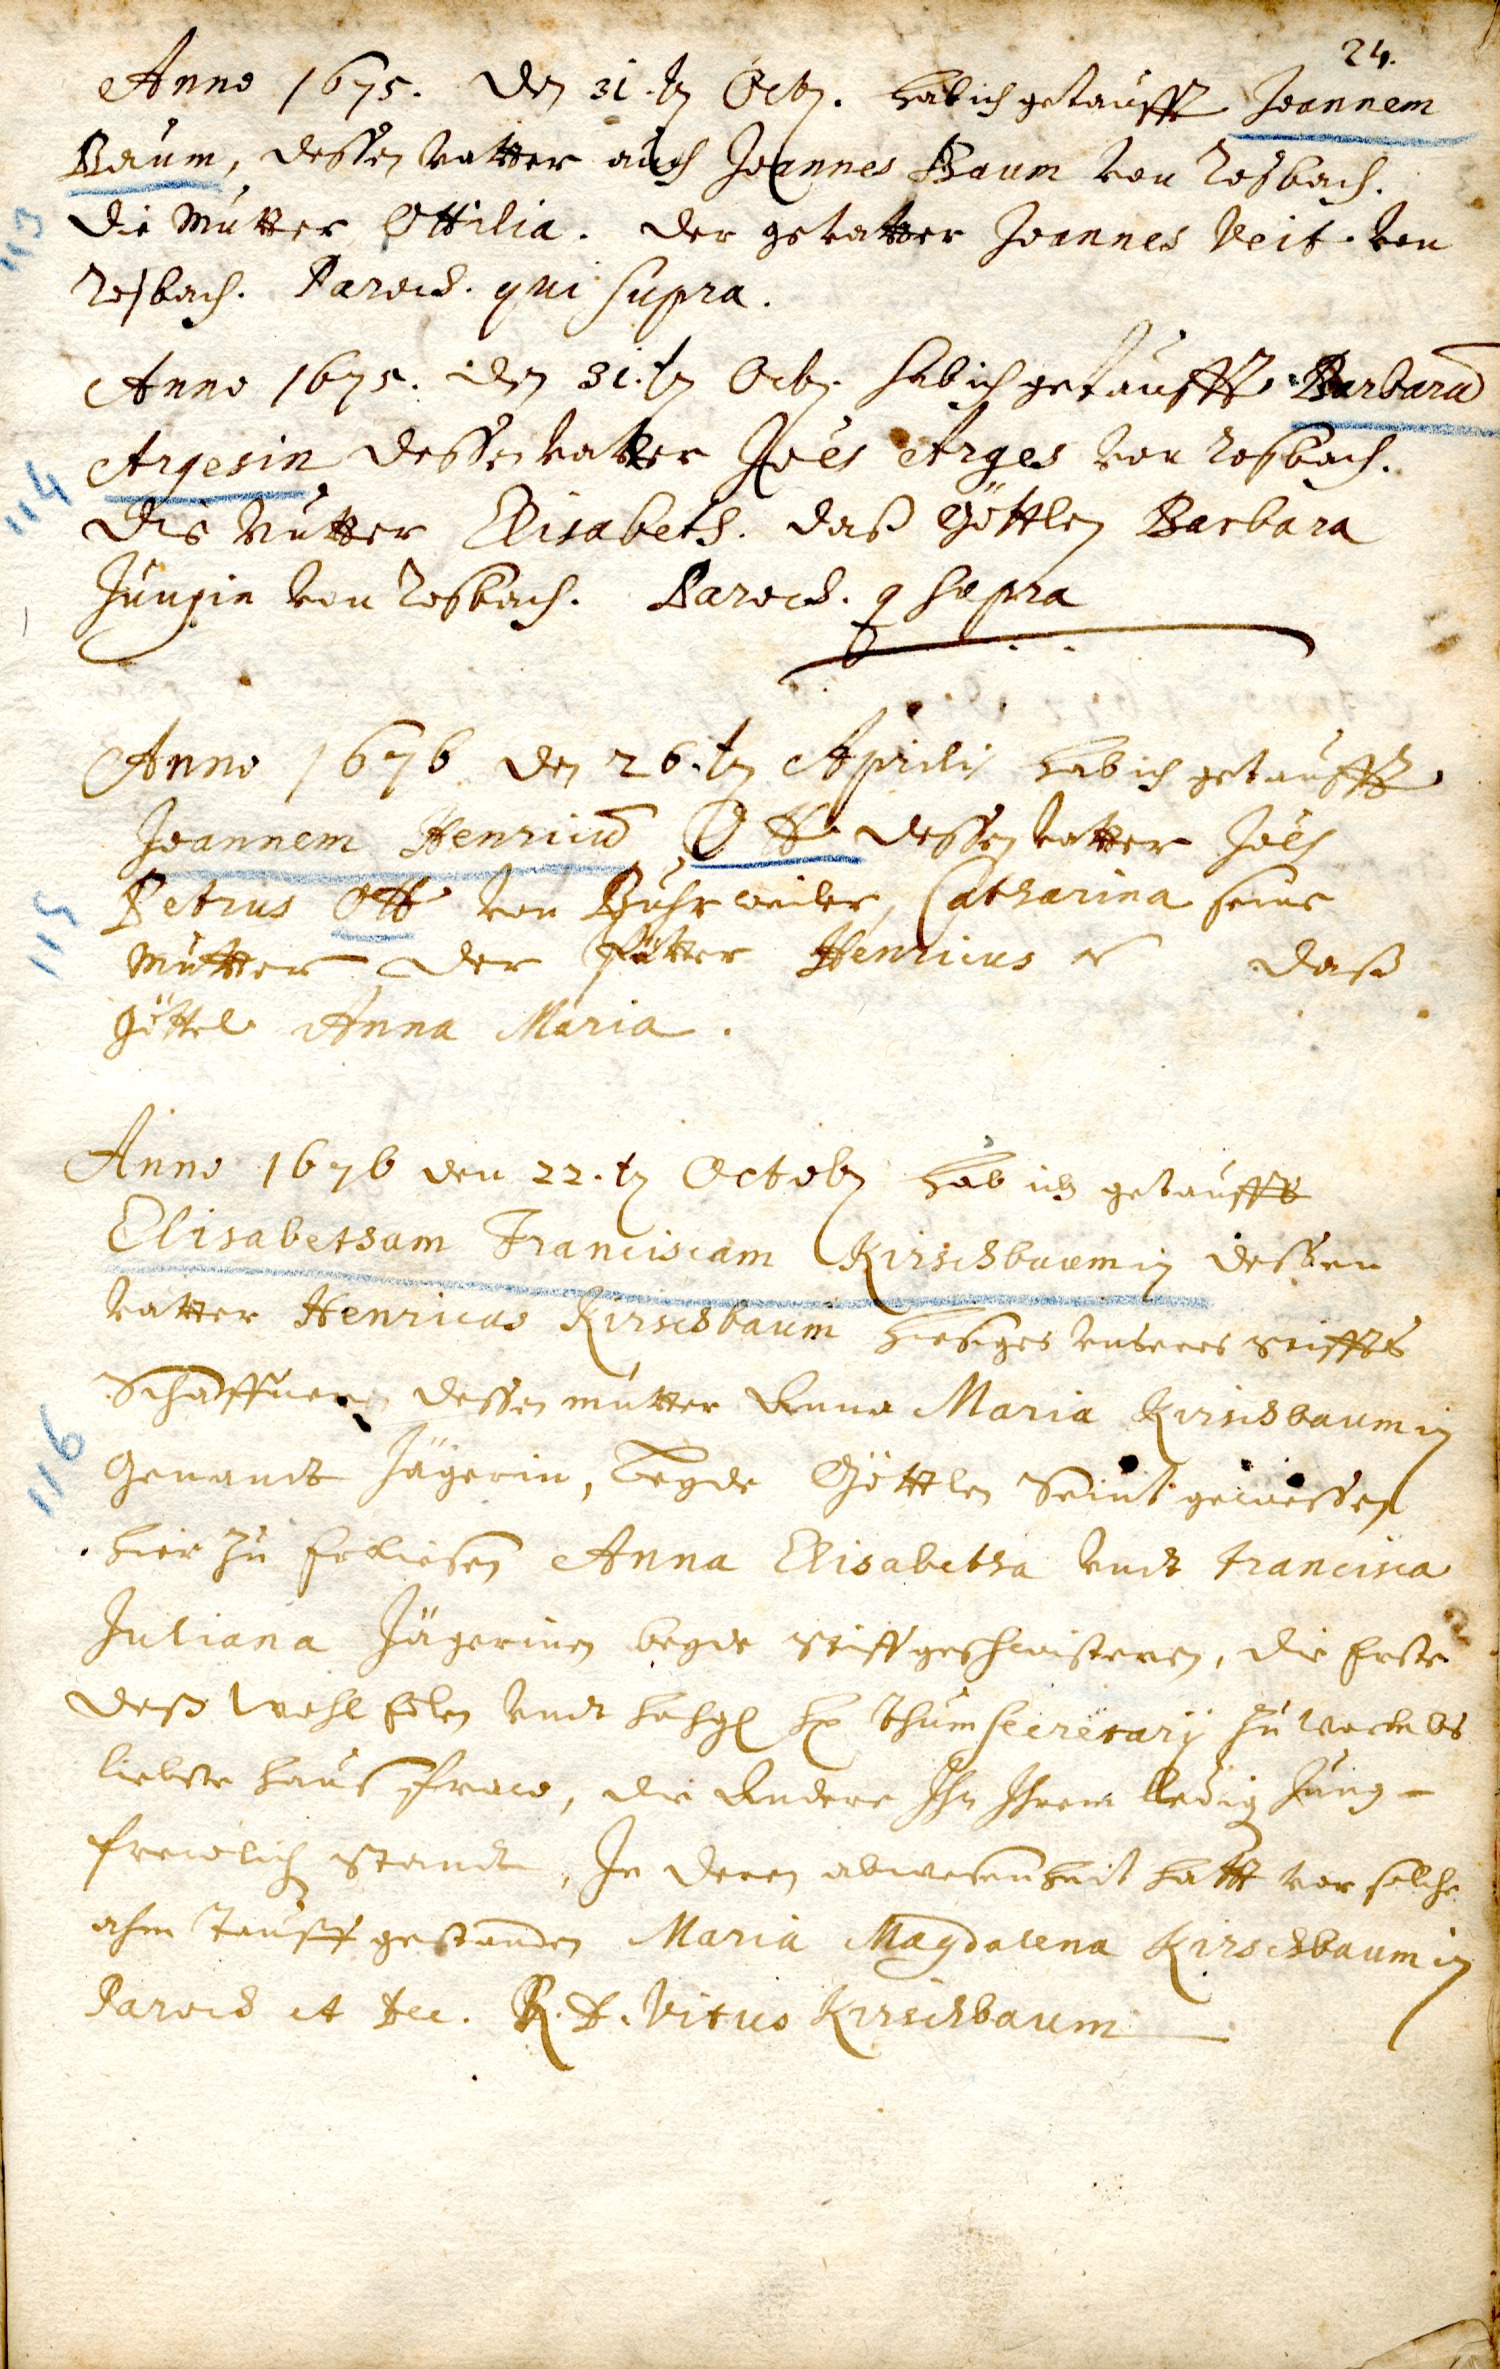 24.
Anno 1675. den 31.ten Octb. hab ich getaufft Joannem
Baum, dessen vatter auch Joannes Baum von Rosbach.
113
die Mutter Ottilia. der gevatter Joannes Veit von
Rosbach. Paroch. qui supra.
Anno 1675. den 31.ten Octb. hab ich getaufft Barbaram
Argesin dessen vatter Joes Arges von Rosbach.
114
die Mutter Elisabeth. daß Göttlen Barbara
Jungin von Rosbach. Paroch. q supra
Anno 1676 den 26.ten Aprilis hab ich getaufft
Joannem Henricum Ott dessen vatter Joes
115
Petrus Ott von Buhrweiler, Catharina seine
Mutter der Pfetter Henricus daß
Göttel Anna Maria.
Anno 1676 den 22.ten Octob hab ich getaufft
Elisabetham Franciscam Kirschbaumin dessen
vatter Henricus Kirschbaum hiesiges stiffts
Schaffner dessen mutter Anna Maria Kirschbaumin
116
Genandt Jägerin, beyde Göttlen Seint gewessen
hier zu Anna Elisabetha undt Francisca
Juliana Jägerinen beyde stiffgeschwisteren, die Erste
deß Wohl Edlen undt Thum secretarij zu Wormbs
liebste hausfraw, die Andere Ihn Ihrem ledig Jung-
frewlich standt, In deren abwesenheit hatt vor solche
ahm Tauff gestanden Maria Magdalena Kirschbaumin
Paroch et Dec. R. D. Vitus Kirschbaum